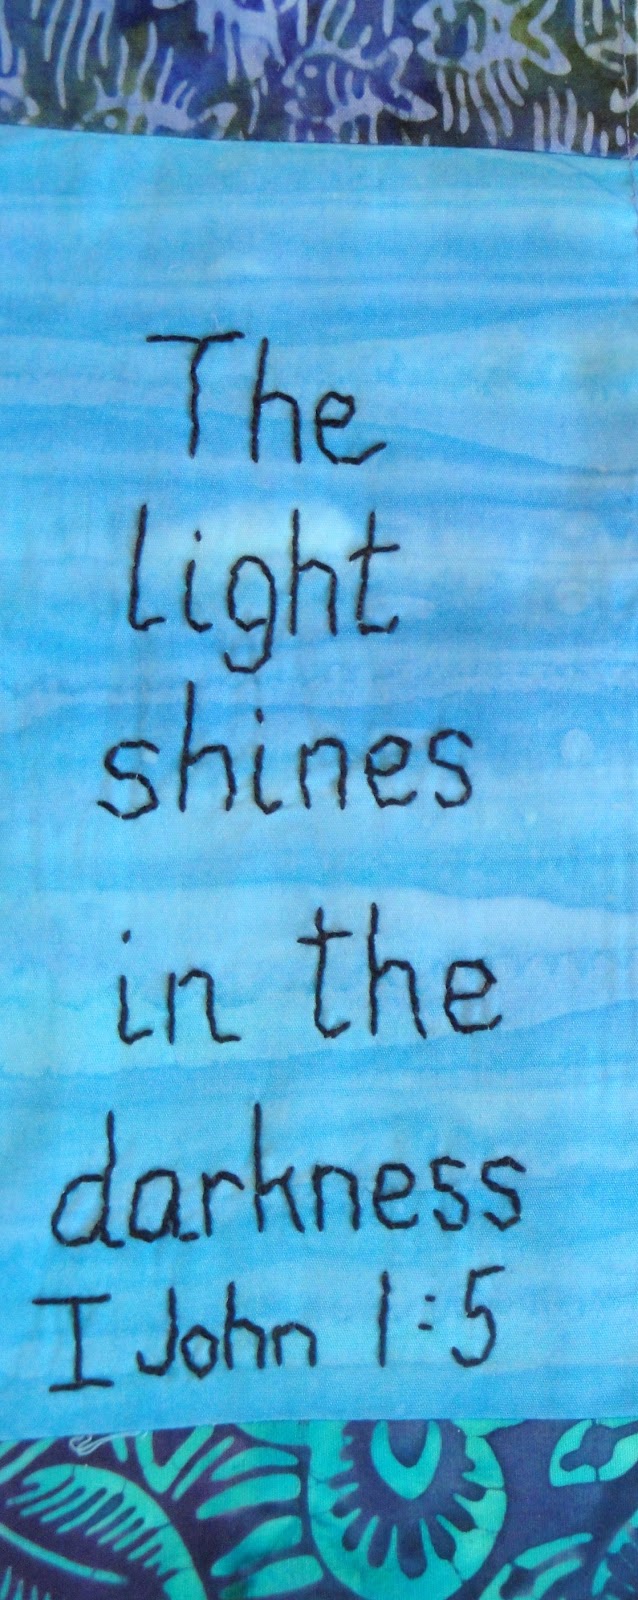 The
light
shines
in the
darkness
I John 1:5